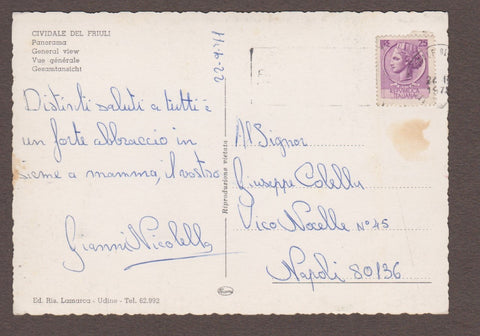 CIVIDALE DEL FRIULI
Panorama
General view
Vue générale
Gesamtansicht
22-9-71
Distinti saluti a tutti è
un forte abbraccio in
sieme a mamma, il vostro
Gianni Nicolella
Ed. Ris. Lamarca - Udine - Tel. 62.992
Riproduzione vietata
25
Al Signor
Giuseppe Colella
Vico Nocelle N° 45
Napoli 80136